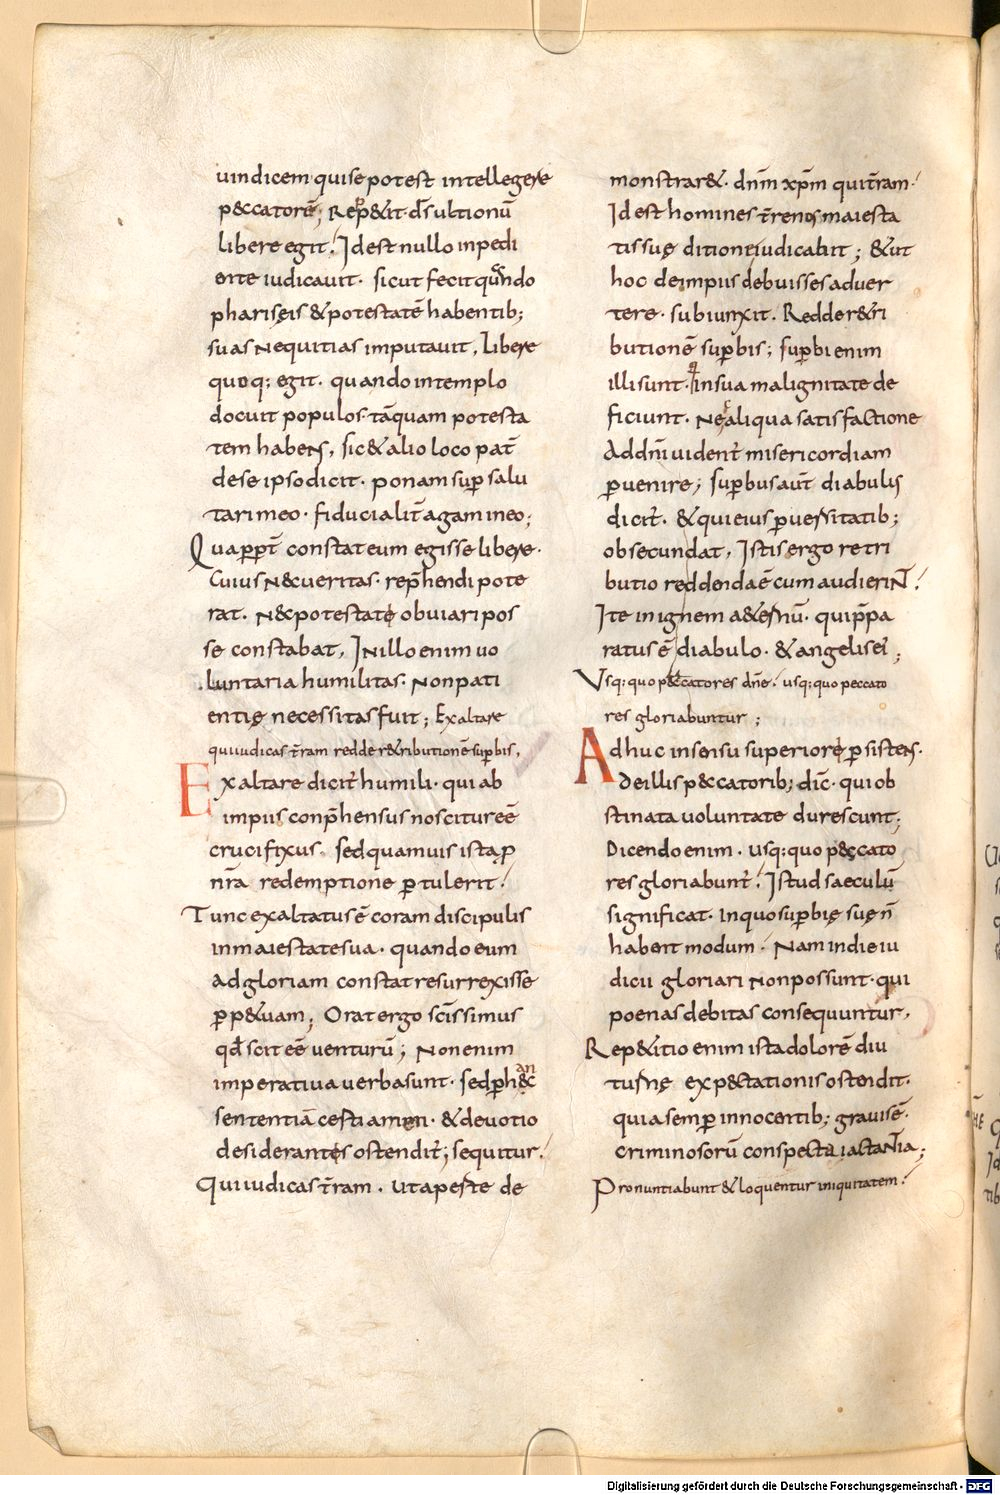 uindicem quise potest intellegere
p&ccatorē; Rep&it dꝰs ultionū
libere egit. Idest nullo inpedi
ente iudicauit. sicut fecit quando
phariseis & potestatē habentib;
suas nequitias imputauit, Libere
quoq; egit. quando intemplo
docuit populos tāquam potesta
tem habens, sic & alio loco pat̄
dese ipso dicit. ponam sup̄ salu
tari meo. fiducialit̄ agam in eo;
Quapp̄t constat eum egisse libere.
Cuius nec ueritas. rep̄hendi pote
rat. nec potestate obuiari pos
se constabat, In illo enim uo
luntaria humilitas. Non pati
entię necessitas fuit; Exaltare
qui iudicas t̄ram redde r&ributionē sup̄bis,
Exaltare dicit̄ humili. qui ab
impiis conp̄hensus noscitur eē
crucifixus. sed quamuis ista ꝓ
nr̄a redemptione ꝑtulerit.
Tunc exaltatus ē coram discipulis
in maiestate sua. quando eum
ad gloriam constat resurrexisse
ꝑp&uam; Orat ergo sc̄issimus
qđ scit eē uenturū; Non enim
imperatiua uerba sunt. sed ꝑ hanc
sententiā cęsti amen. & deuotio
desiderantes ostendit̄; sequitur.
Qui iudicas t̄ram. ut apeste de
monstrar&. dn̄m xp̄m qui t̄ram.
Idest homines t̄renos maiesta
tis suę ditione iudicabit; & ut
hoc de impiis debuisses aduer
tere. subiunxit. Redde r&ri
butionē sup̄bis; sup̄bi enim
illi sunt. qui insua malignitate de
ficiunt. Nec aliqua satisfactione
Ad dn̄i uident̄ misericordiam
ꝑuenire; sup̄bus aut̄ diabulus
dicit̄. & qui eius ꝑuersitatib;
obsecundat, Istis ergo retri
butio reddenda ē cum audierint.
Ite in ignem a&ernū. qui p̄pa
ratus ē diabulo. & angelis ei;
Vsq: quo p&ccatores dn̄e. usq: quo peccato
res gloriabuntur;
Adhuc in sensu superiore ꝑsistens.
de illis p&ccatorib; dic̄. qui ob
stinata uoluntate durescunt;
Dicendo enim. usq: quo peccato
res gloriabunt̄. Istud saeculū
significat. in quo sup̄bię suę n̄
habent modum. Nam in die iu
dicii gloriari non possunt. qui
poenas debitas consequuntur,
Rep&itio enim ista dolorē diu
turnę exp&ctationis ostendit.
quia semꝑ innocentib; grauis ē.
criminosorū conspecta iactantia;
Pronuntiabunt & loquentur iniquitatem.
Digitalisierung gefördert durch die Deutsche Forschungsgemeinschaft - DFG